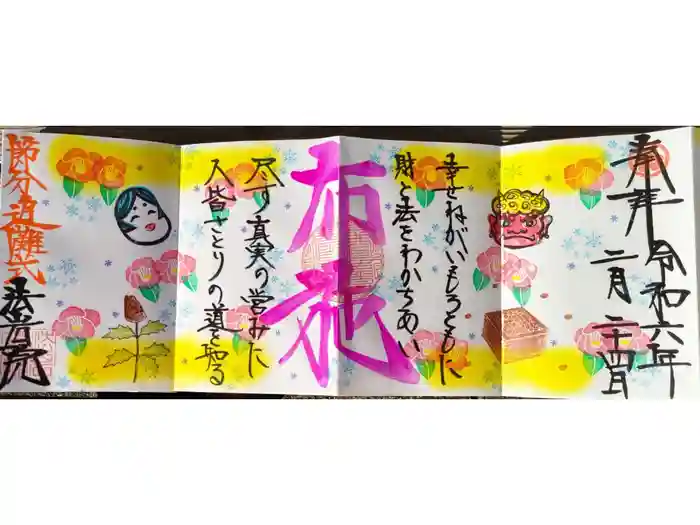 奉拝
令和六年
二月二十四日
幸せねがいもろともに
財と法をわかちあい
布施
尽す真実の営みに
人皆さとりの道を知る
節分追儺式